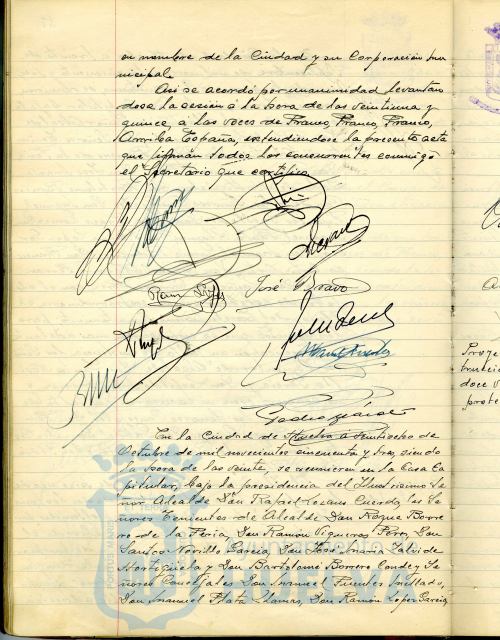 en nombre de la Ciudad y su Corporación mu
nicipal.
Así se acordó por unanimidad levantan
dose la sesión a la hora de las veintiuna y
quince, a las voces de Franco, Franco, Franco,
Arriba España, extendiendose la presente acta
que firman todos los concurrentes conmigo
el Secretario que certifico.
José Bravo
En la Ciudad de Huelva a veintiocho de
Octubre de mil novecientos cincuenta y tres, siendo
la hora de las veinte, se reunieron en la Casa Ca
pitular, bajo la presidencia del Ilustrísimo Se
ñor Alcalde Don Rafael Lozano Cuerda, los Se
ñores Tenientes de Alcalde Don Roque Borre
ro de la Feria, Don Ramón Vigueras Pérez, Don
Santos Novillo García, Don José María
y Don Bartolomé Borrero Conde y Se
ñores Concejales Don Manuel Fuentes
Don Manuel Plata Llamas, Don Ramón López García,
Proye
trucció
doce v
prote